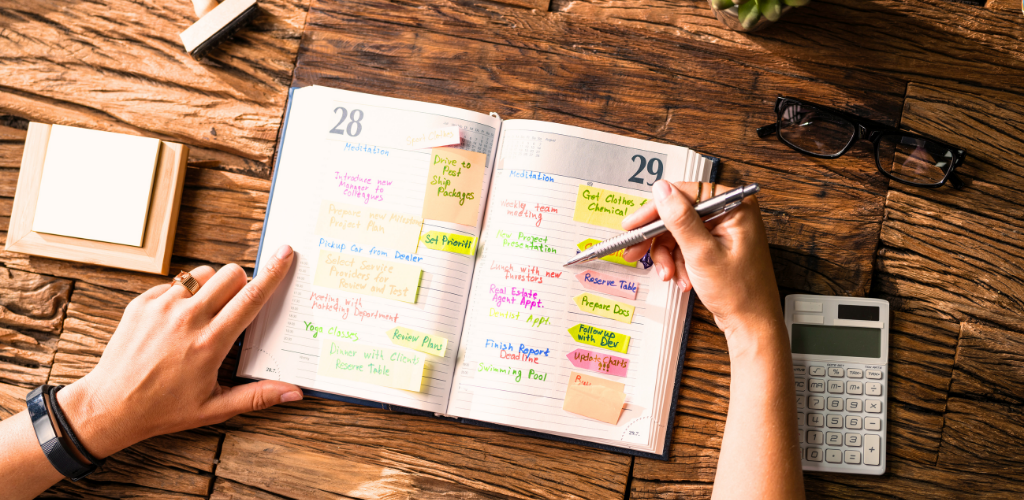 28
Meditation
Drive to
Post
Ship
Packages
Introduce new
Manager to
Colleagues
Prepare new
Project Plan
Set Priorities
Pickup Car from Dealer
Select Service
Providers for
Review and Test
Meeting with
Marketing Department
Yoga Classes
Review Plans
Dinner with Client
Reserve Table
29
Meditation
Get Clothes
Chemical
Weekly team
meeting
New Project
Presentation
Lunch with new
investors
Reserve Table
Real Estate
Agent Appt.
Prepare Docs
Dentist Appt.
Followup
with Dev
Finish Report
Deadline
Update Charts
Swimming Pool